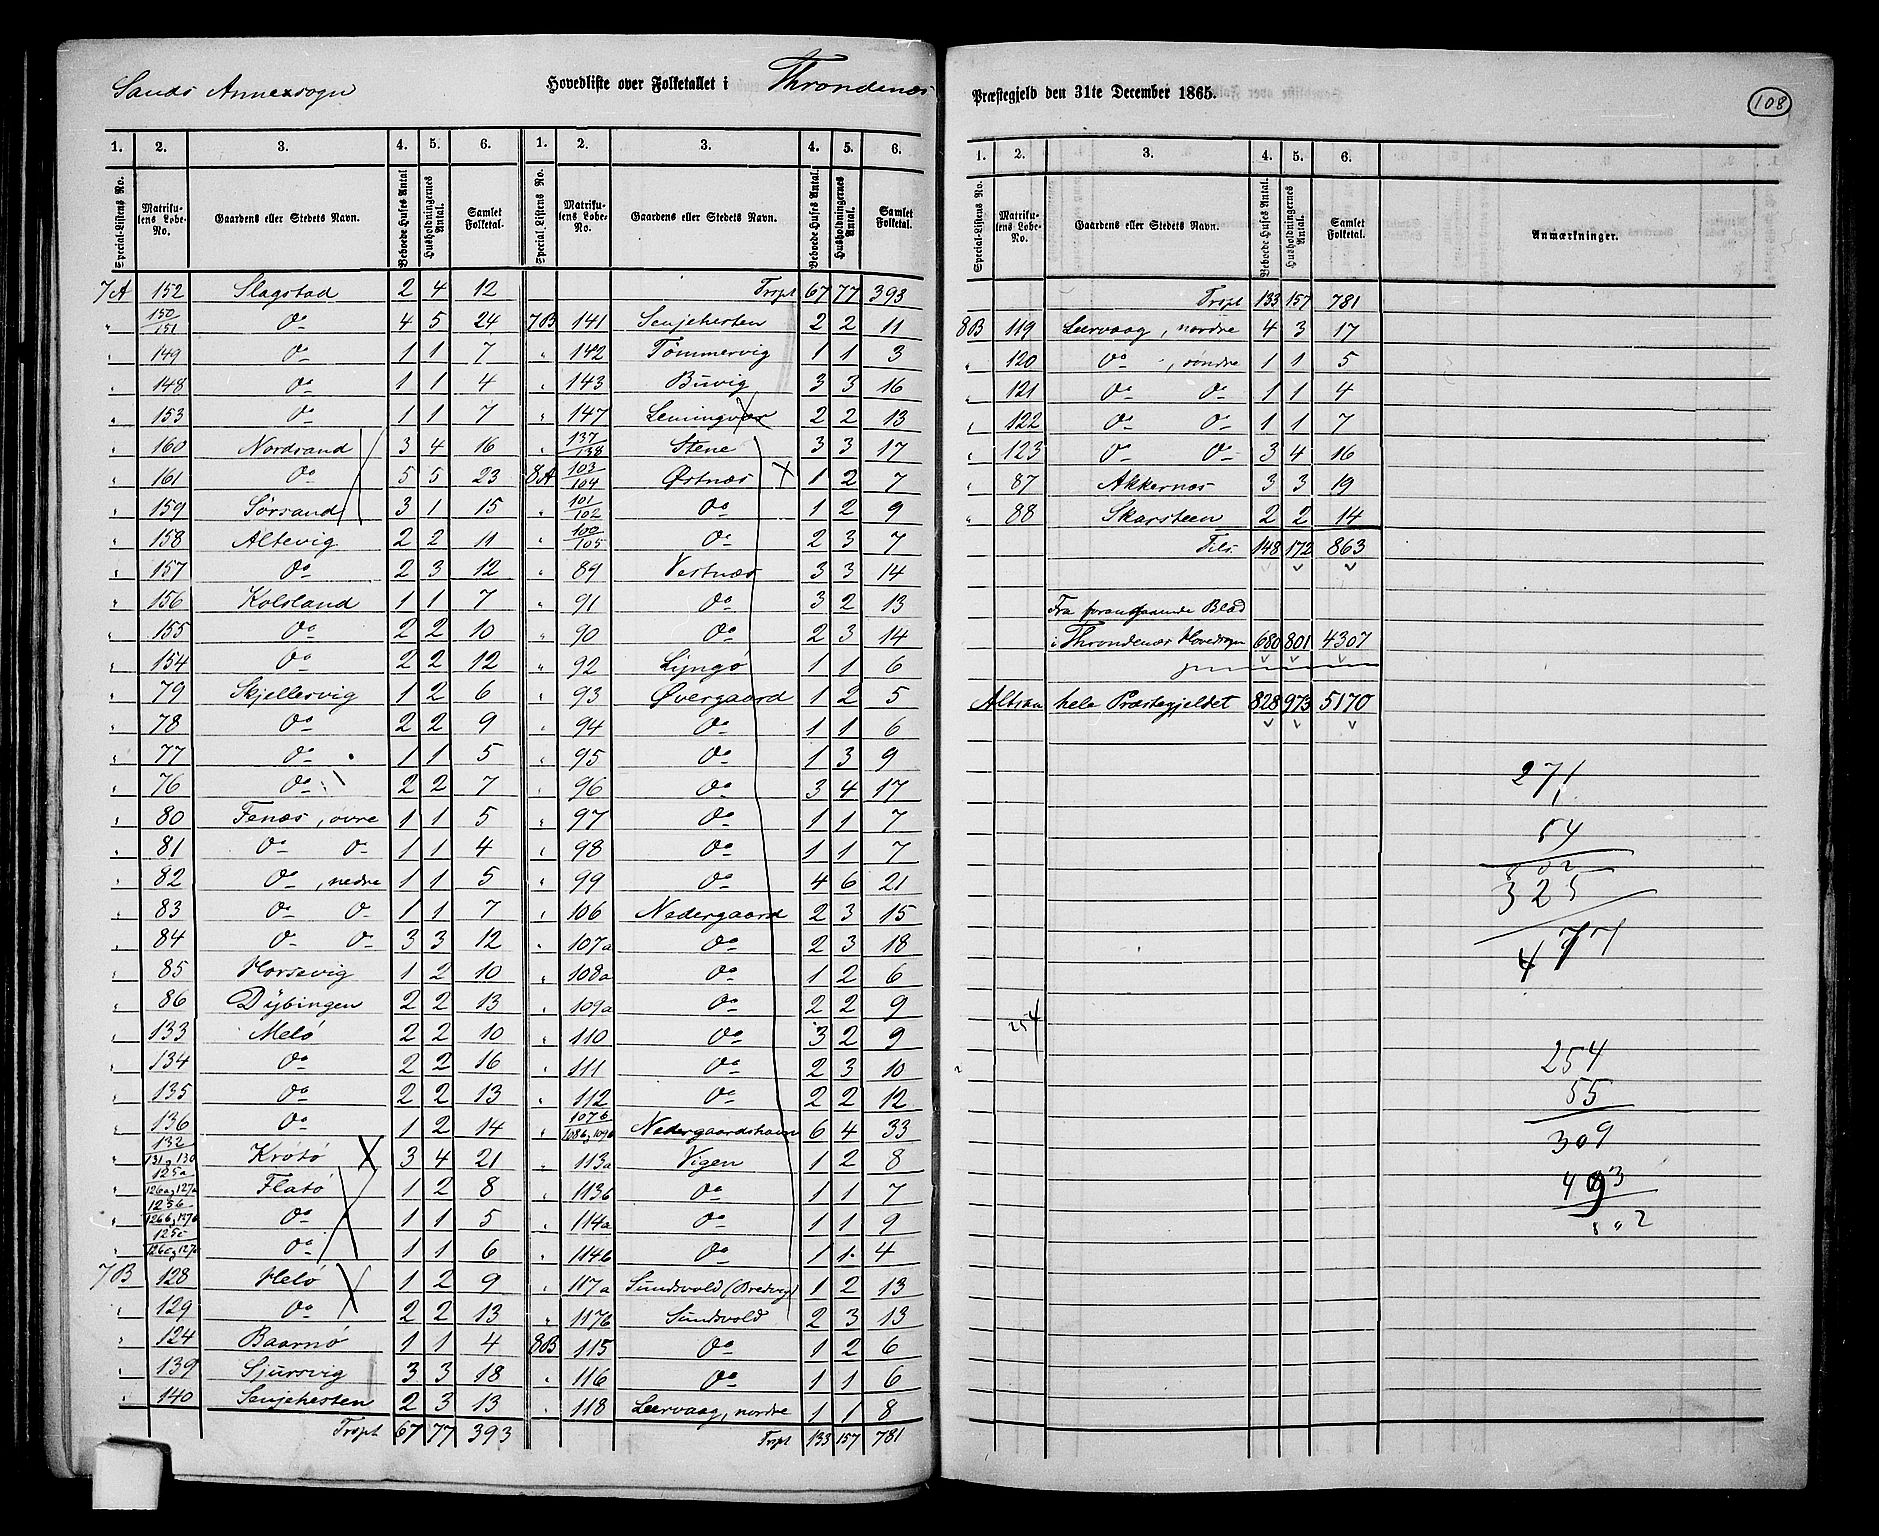 Sands Annexsogn
Hovedliste over Folketallet i Throndenæs
Præstegjeld den 31te December 1865.
108
1. 2. 3. 4. 5. 6. 1. 2. 3. 4. 5. 6.
Special-Listens No. Matrikulens Løbe-No. Gaardens eller Stedets Navn. Beboede Huses Antal Husholdningernes Antal. Samlet Folketal. Special-Listens No. Matrikulens Løbe-No. Gaardens eller Stedets Navn. Beboede Huses Antal. Husholdningernes Antal. Samlet Folketal.
7A 152 Slagstad 2 4 12
" 150/151 Do 4 5 24
" 149 Do 1 1 7
" 148 Do 1 1 4
" 153 Do 1 1 7
" 160 Nordsand 3 4 16
" 161 Do 5 5 23
" 159 Sørsand 3 1 15
" 158 Altevig 2 2 11
" 157 Do 2 3 12
" 156 Kolsland 1 1 7
" 155 Do 2 2 10
" 154 Do 2 2 12
" 79 Skjellesvig 1 2 6
" 78 Do 2 2 9
" 77 Do 1 1 5
" 76 Do 2 2 7
" 80 Fenæs, øvre 1 1 5
" 81 Do Do 1 1 4
" 82 Do, nedre 1 1 5
" 83 Do Do 1 1 7
" 84 Do Do 3 3 12
" 85 Horsevig 1 2 10
" 86 Dybingen 2 2 13
" 133 Melø 2 2 10
" 134 Do 2 2 16
" 135 Do 2 2 13
" 136 Do 1 2 14
" 132 131 og 130 Krøtø 3 4 21
" 125a 126a og 127a Flatø 1 2 8
" 125b 126b, 127b Do 1 1 5
" 125c 126c og 127c Do 1 1 6
7B 128 Helø 1 2 9
" 129 Do 2 2 13
" 124 Baarnø 1 1 4
" 139 Sjursvig 3 3 18
" 140 Senjehesten 2 3 13
Trspt 67 77 393
Trspt 67 77 393
7B 141 Senjehesten 2 2 11
" 142 Tømmervig 1 1 3
" 143 Buvig 3 3 16
" 147 Lemingvær 2 2 13
" 137/138 Stene 3 3 17
8A 103/104 Østnæs 1 2 7
" 101/102 Do 1 2 9
" 100/105 Do 2 3 7
" 89 Vestnæs 3 3 14
" 91 Do 3 2 13
" 90 Do 2 3 14
" 92 Lyngø 1 1 6
" 93 Øvergaard 1 2 5
" 94 Do 1 1 6
" 95 Do 1 3 9
" 96 Do 3 4 17
" 97 Do 1 1 7
" 98 Do 1 1 7
" 99 Do 4 6 21
" 106 Nedergaard 2 3 15
" 107a Do 2 3 18
" 108a Do 1 2 6
" 109a Do 2 2 9
" 110 Do 3 2 9
" 111 Do 2 3 10
" 112 Do 2 2 12
" 107b 108b, 109b Nedergaardshavn 6 4 33
" 113a Vigen 1 2 8
" 113b Do 1 1 7
" 114a Do 1 1 9
" 114b Do 1 1 4
" 117a Sundsvold (Bredvig) 1 2 13
" 117b Sundsvold 2 3 13
8B 115 Do 1 2 6
" 116 Do 1 1 6
" 118 Leervaag, nordre 1 1 8
Trspt 133 157 781
1. 2. 3. 4. 5. 6.
Special-Listens No. Matrikulens Løbe-No. Gaardens eller Stedets Navn. Beboede Huses Antal. Husholdningernes Antal. Samlet Folketal. Anmærkninger.
Trspt 133 157 781
8B 119 Leervaag, nordre 4 3 17
" 120 Do, søndre 1 1 5
" 121 Do Do 1 1 4
" 122 Do Do 1 1 7
" 123 Do Do 3 4 16
" 87 Akkernæs 3 3 19
" 88 Skarsteen 2 2 14
Tils. 148 172 863
Fra foranstaaende Blad
i Throndenæs Hovedsogn 680 801 4307
Altsaa hele Præstegjeldet 828 973 5170
271
54
325
477
254
254
55
309